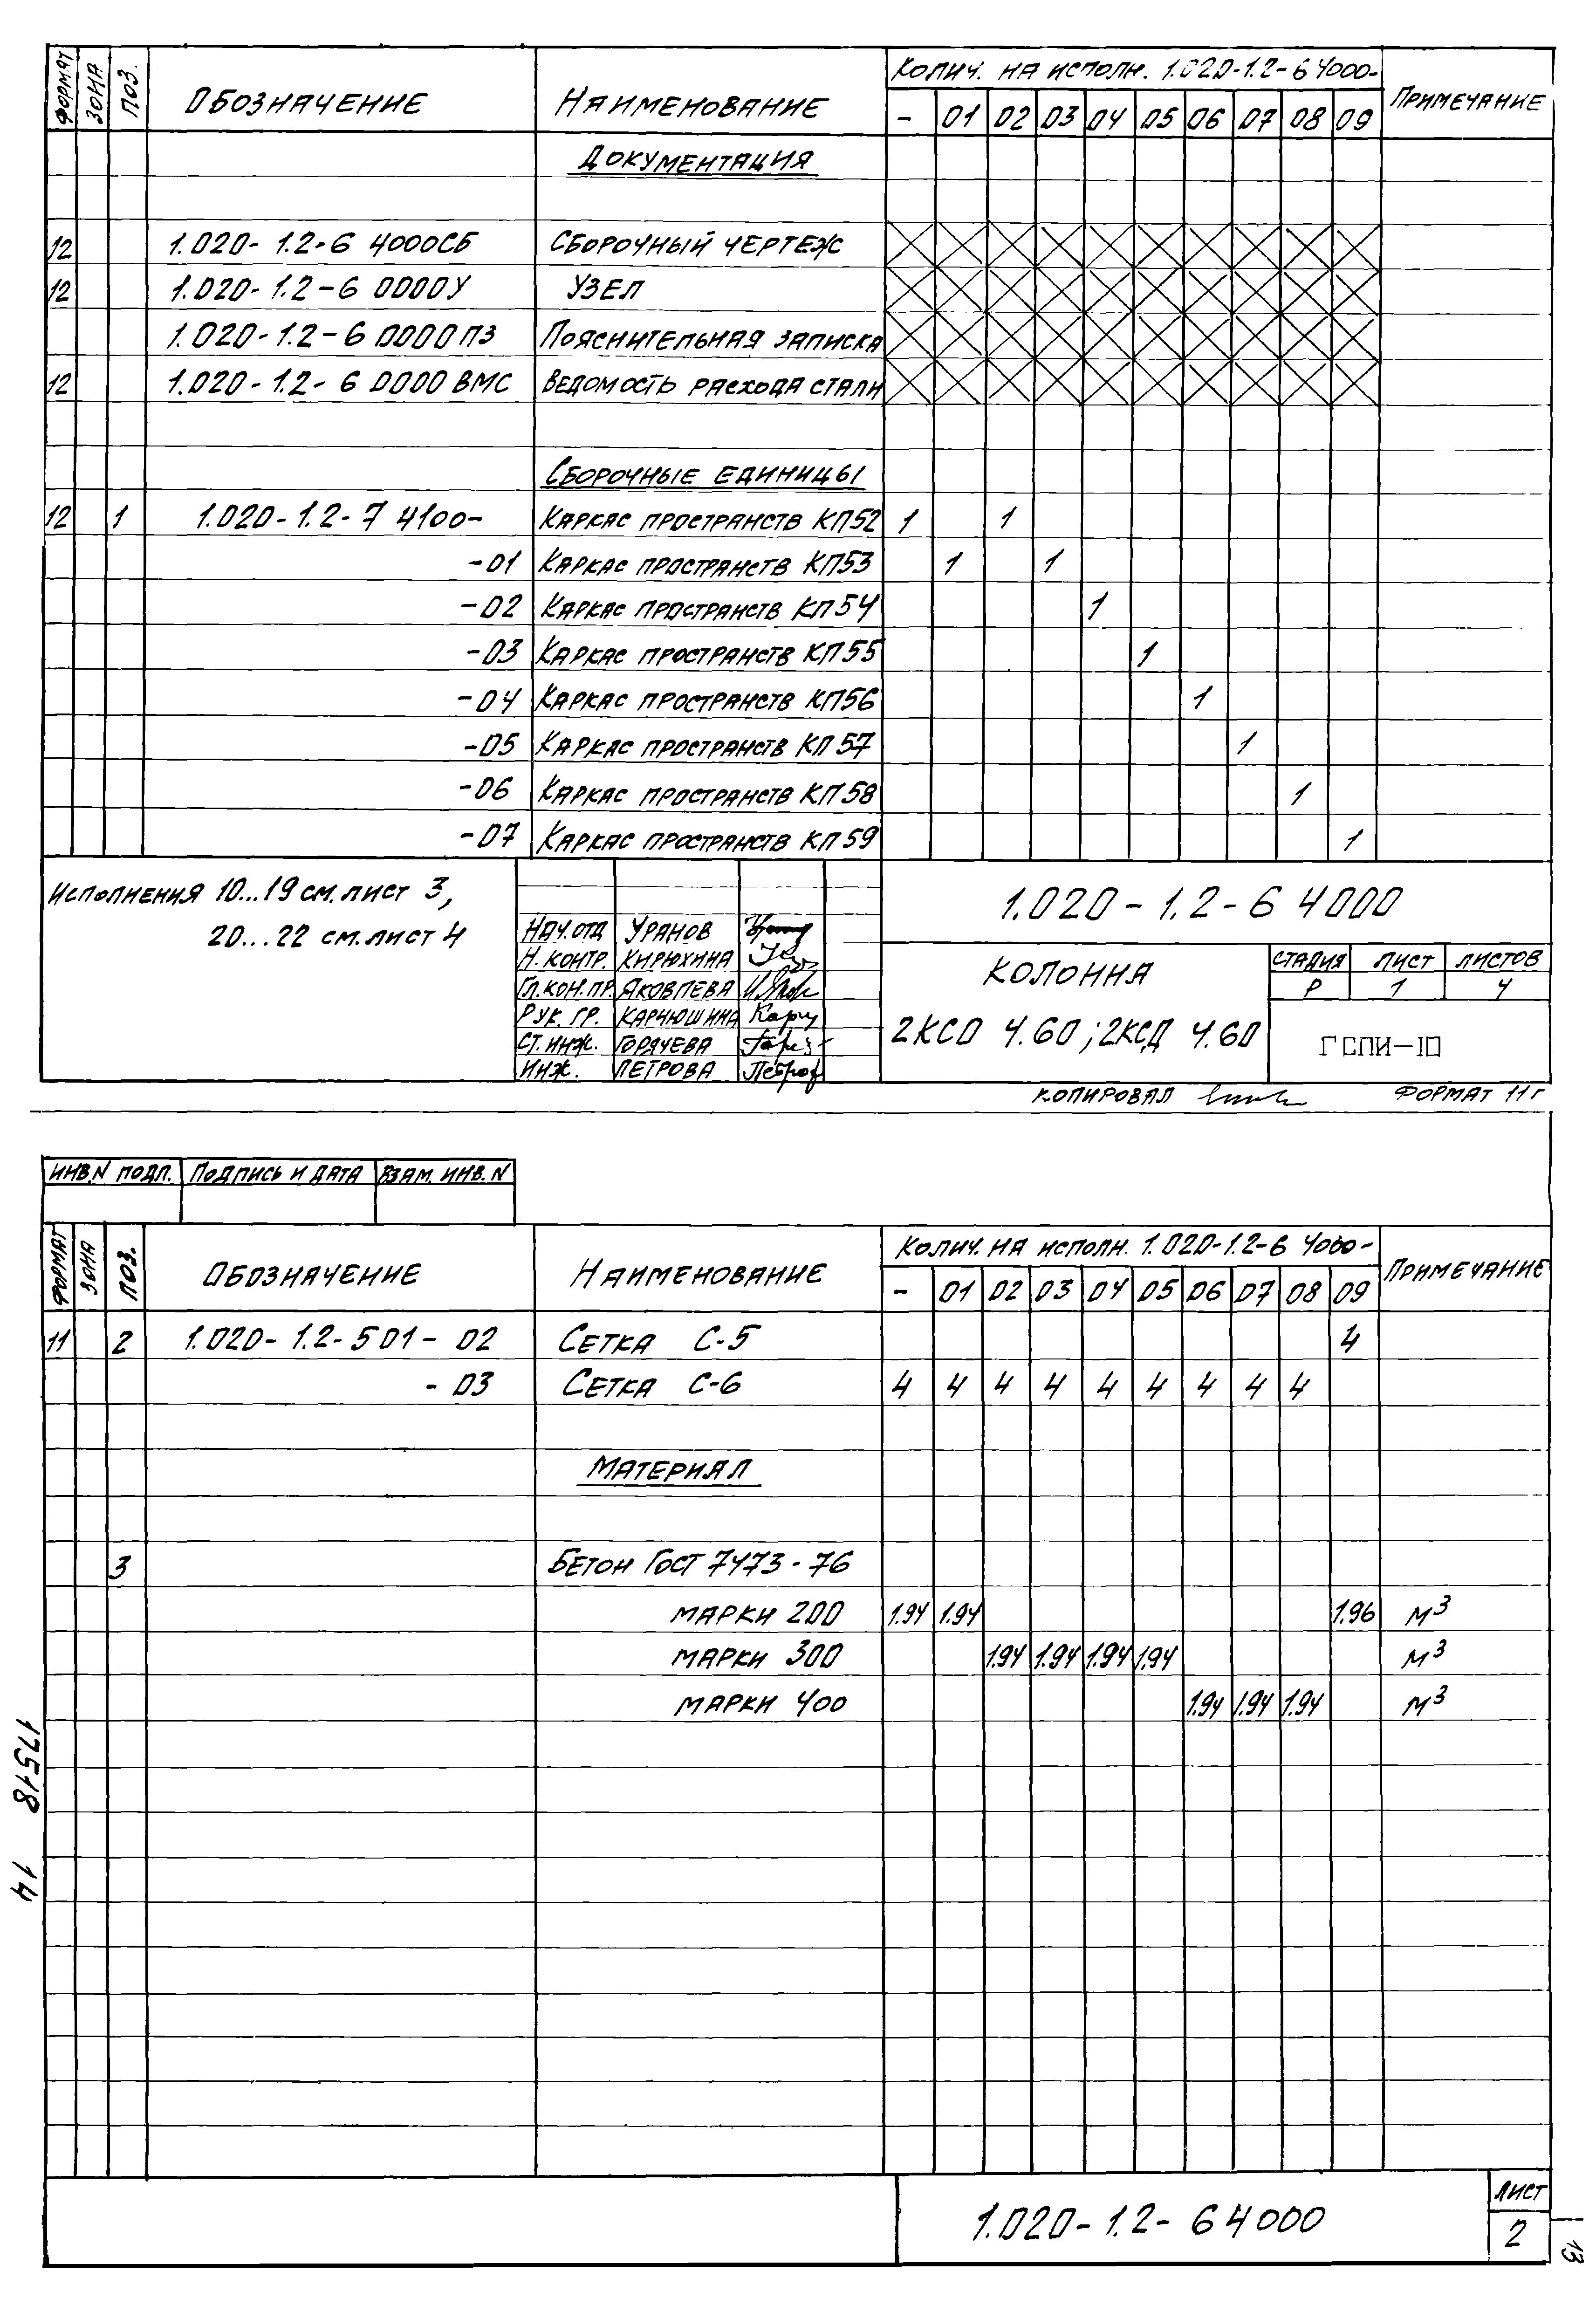 ФОРМАТ ЗОНА ПОЗ. ОБОЗНАЧЕНИЕ НАИМЕНОВАНИЕ КОЛИЧ. НА ИСПОЛН. 1.020-1.2-6 4000- ПРИМЕЧАНИЕ
- 01 02 03 04 05 06 07 08 09
ДОКУМЕНТАЦИЯ
12 1.020-1.2-6 4000СБ СБОРОЧНЫЙ ЧЕРТЕЖ
12 1.020-1.2-6 0000У УЗЕЛ
1.020-1.2-6 0000ПЗ ПОЯСНИТЕЛЬНАЯ ЗАПИСКА
12 1.020-1.2-6 0000 ВМС ВЕДОМОСТЬ РАСХОДА СТАЛИ
СБОРОЧНЫЕ ЕДИНИЦЫ
12 1 1.020-1.2-7 4100- КАРКАС ПРОСТРАНСТВ КП52 1 1
-01 КАРКАС ПРОСТРАНСТВ КП53 1 1
-02 КАРКАС ПРОСТРАНСТВ КП54 1
-03 КАРКАС ПРОСТРАНСТВ КП55 1
-04 КАРКАС ПРОСТРАНСТВ КП56 1
-05 КАРКАС ПРОСТРАНСТВ КП57 1
-06 КАРКАС ПРОСТРАНСТВ КП58 1
-07 КАРКАС ПРОСТРАНСТВ КП59 1
ИСПОЛНЕНИЯ 10...19 СМ. ЛИСТ 3,
20...22 СМ. ЛИСТ 4
НАЧ.ОТД УРАНОВ
Н. КОНТР. КИРЮХИНА
ГЛ.КОН.ПР. ЯКОВЛЕВА
РУК. ГР. КАРНЮШИНА
СТ. ИНЖ. ГОРЯЧЕВА
ИНЖ. ПЕТРОВА
1.020-1.2-6 4000
КОЛОННА
2КСО 4.60; 2КСД 4.60
СТАДИЯ ЛИСТ ЛИСТОВ
Р 1 4
ГСПИ-10
КОПИРОВАЛ ФОРМАТ 11Г
ИНВ.N ПОДП. ПОДПИСЬ И ДАТА ВЗАМ. ИНВ. N
ФОРМАТ ЗОНА ПОЗ. ОБОЗНАЧЕНИЕ НАИМЕНОВАНИЕ КОЛИЧ. НА ИСПОЛН. 1.020-1.2-6 4000- ПРИМЕЧАНИЕ
- 01 02 03 04 05 06 07 08 09
11 2 1.020-1.2-5 01-02 СЕТКА С-5 4
-03 СЕТКА С-6 4 4 4 4 4 4 4 4 4
МАТЕРИАЛ
3 БЕТОН ГОСТ 7473-76
МАРКИ 200 1.94 1.94 1.96 М³
МАРКИ 300 1.94 1.94 1.94 1.94 М³
МАРКИ 400 1.94 1.94 1.94 М³
17518 14
1.020-1.2-6 4000
ЛИСТ
2
13